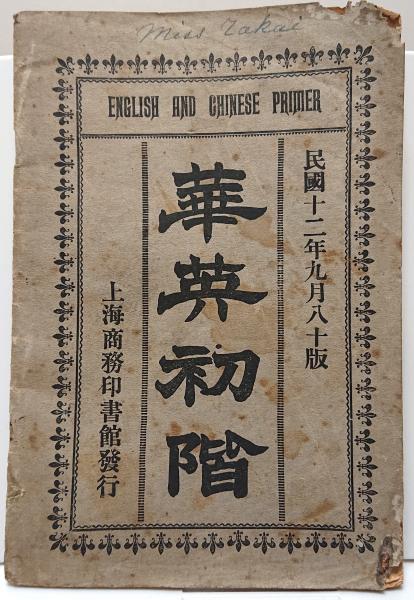 Miss Takai
ENGLISH AND CHINESE PRIMER
民國十二年九月八十版
華英初階
上海商務印書館發行